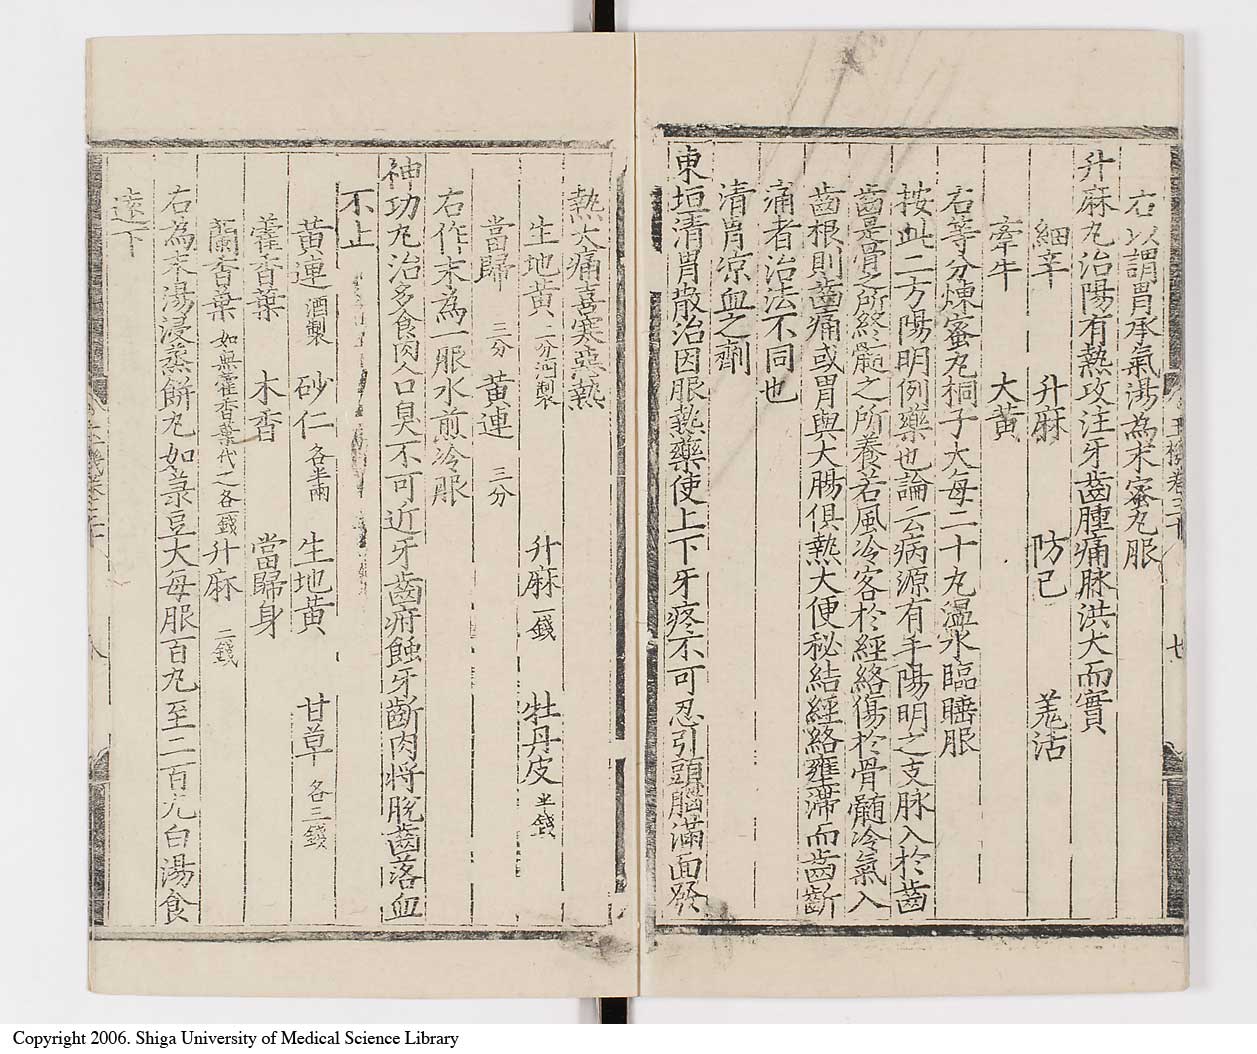 右以謂胃承氣湯為末蜜丸服
升麻丸治陽有熱攻注牙齒腫痛脉洪大而實
細辛 升麻 防已 羗活
牽牛 大黃
右等分煉蜜丸桐子大每二十丸溫水臨睡服
按此二方陽明例藥也論云病源有手陽明之支脉入於齒
齒是骨之所終髓之所養若風冷客於經絡傷於骨髓冷氣入
齒根則齒痛或胃與大腸俱熱大便秘結經絡壅滯而齒齗
痛者治法不同也
清胃凉血之劑
東垣清胃散治因服熱藥使上下牙疼不可忍引頭腦滿面發
熱大痛喜寒惡熱
生地黃 二分酒製 升麻 一錢 牡丹皮 半錢
當歸 三分 黃連 三分
右作末為一服水煎冷服
神功丸治多食肉人口臭不可近牙齒疳蝕牙齗肉將脫齒落血
不止
黃連 酒製 砂仁 各半兩 生地黃 甘草 各三錢
藿香葉 木香 當歸身
蘭香葉 如無藿香葉代之各一錢 升麻 二錢
右為末湯浸蒸餅丸如菉豆大每服百丸至二百丸白湯食
遠下
Copyright 2006. Shiga University of Medical Science Library